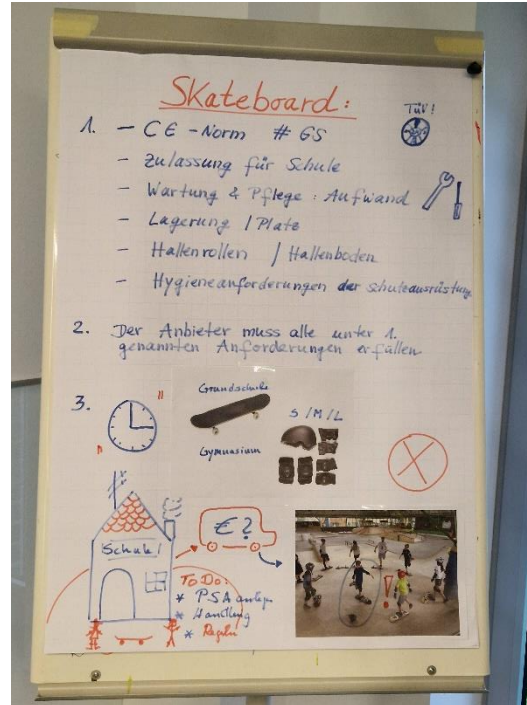 Skateboard:
TÜV!
1. - CE-Norm # GS
- Zulassung für Schule
- Wartung & Pflege : Aufwand
- Lagerung / Platz
- Hallenrollen / Hallenboden
- Hygieneanforderungen der
2. Der Anbieter muss alle unter 1.
genannten Anforderungen erfüllen
3.
Grundschule
S / M / L
Gymnasium
Schule
€ ?
To Do:
* PSA
* Handling
* Regeln
!